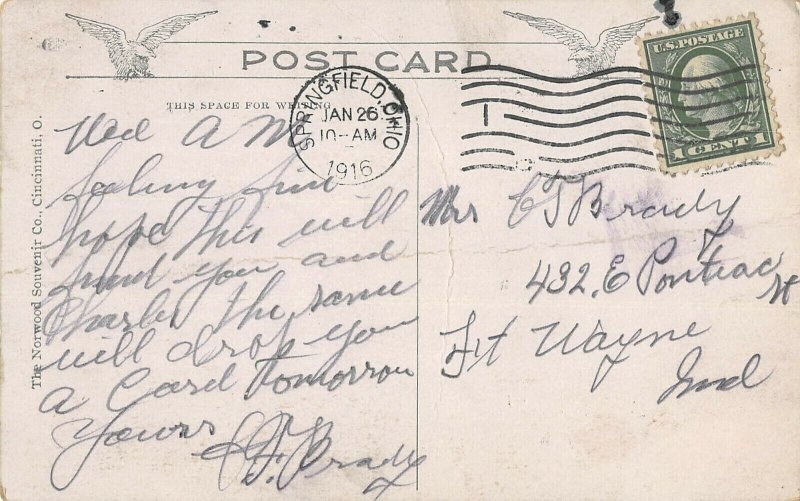 POST CARD
THIS SPACE FOR WRITING
The Norwood Souvenir Co., Cincinnati, O.
SPRINGFIELD, OHIO
JAN 26
10-AM
1916
U.S. POSTAGE
1 CENT 1
Wed A M
feeling fine
hope this will
find you and
Charley the same
will drop you
a Card tomorrow
Yours
C T Brady
Mrs C T Brady
432, E Pontiac St
Ft Wayne
Ind